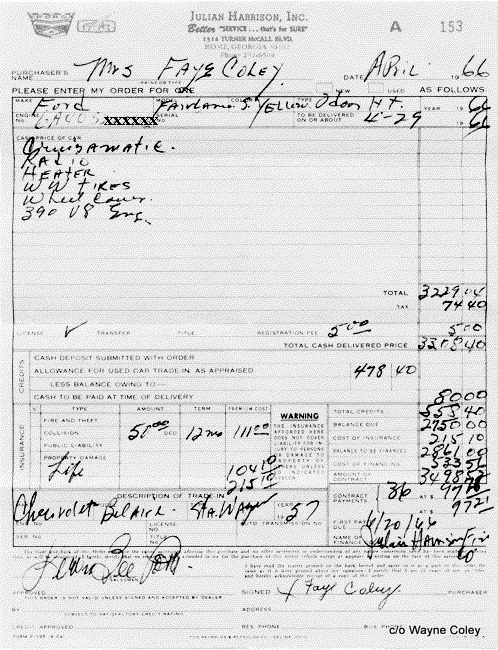 JULIAN HARRISON, INC.
Better "SERVICE ... that's for SURE"
1512 TURNER McCALL BLVD.
ROME, GEORGIA
A 153
PURCHASER'S NAME Mrs FAYE COLEY DATE APRIL 1966
PLEASE ENTER MY ORDER FOR ONE NEW USED AS FOLLOWS
MAKE Ford MODEL Fairlane COLOR Yellow 2 door H.T. YEAR 1966
ENGINE NO. XXXXXX SERIAL NO. TO BE DELIVERED ON OR ABOUT 4-29 1966
CASH PRICE OF CAR
Cruisamatic.
RADIO
HEATER
W W TIRES
Wheel Cover
390 V8 Eng.
TOTAL 3229 04
TAX 74 40
LICENSE TRANSFER TITLE REGISTRATION FEE 5 00 5 00
TOTAL CASH DELIVERED PRICE 3308 40
CREDITS
CASH DEPOSIT SUBMITTED WITH ORDER
ALLOWANCE FOR USED CAR TRADE IN AS APPRAISED 478 40
LESS BALANCE OWING TO—
CASH TO BE PAID AT TIME OF DELIVERY 80 00
INSURANCE
TYPE AMOUNT TERM PREMIUM COST
FIRE AND THEFT
COLLISION 50 00 DED 12 mo 111 00
PUBLIC LIABILITY
PROPERTY DAMAGE
Life 104 10
215 10
WARNING
THE INSURANCE
AFFORDED HERE
DOES NOT COVER
LIABILITY FOR IN-
JURY TO PERSONS
OR DAMAGE TO
PROPERTY OF
OTHERS UNLESS
SO INDICATED
TOTAL CREDITS 558 40
BALANCE DUE 2750 00
COST OF INSURANCE 215 10
BALANCE TO BE FINANCED
COST OF FINANCING
AMOUNT OF CONTRACT
CONTRACT PAYMENTS 36 AT $
AT $ 97 21
DESCRIPTION OF TRADE IN
Chevrolet Belair Sta. Wagon YEAR 1957
ENG NO. LICENSE NO. AUTO TRANSMISSION NO.
SER NO. TITLE NO.
FIRST PAYMENT DUE 6/20/66
NAME OF FINANCE CO. Julian Harrison Inc
SALESMAN
APPROVED SIGNED X Faye Coley PURCHASER
THIS ORDER IS NOT VALID UNLESS SIGNED AND ACCEPTED BY DEALER
BY ADDRESS
SUBJECT TO SATISFACTORY CREDIT RATING
CREDIT APPROVED RES. PHONE BUS. PHONE
c/o Wayne Coley